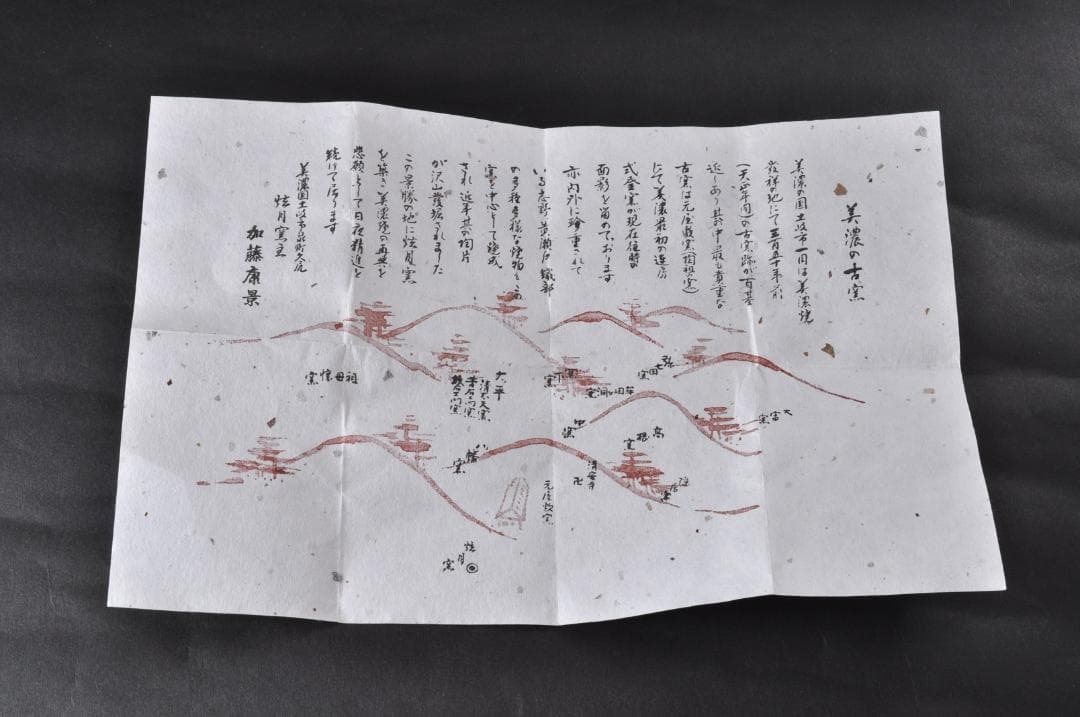 美濃の古窯
美濃の国土岐市一円は美濃焼
発祥地にて三百五十年前
(天正年間)の古窯跡が一百基
近しあり其の中最も貴重な
古窯は元屋敷窯(陶祖窯)
にて美濃最初の連房
式登窯が現在往時の
面影を留めております
亦内外に珍重されて
いる志野黄瀬戸織部
の多種多様な焼物もこの
窯を中心として焼成
され近年其の陶片
が沢山発掘されました
この景勝の地に炫月窯
を築き美濃焼の再興を
悲願として日夜精進を
続けて居ります
美濃国土岐市泉町久尻
炫月窯主
加藤康景
大富窯
弥七田窯
高根窯
中窯
清安寺
卍
隠居窯
元屋敷窯
大平
清水天窯
八幡窯
祖母懐窯
炫月窯